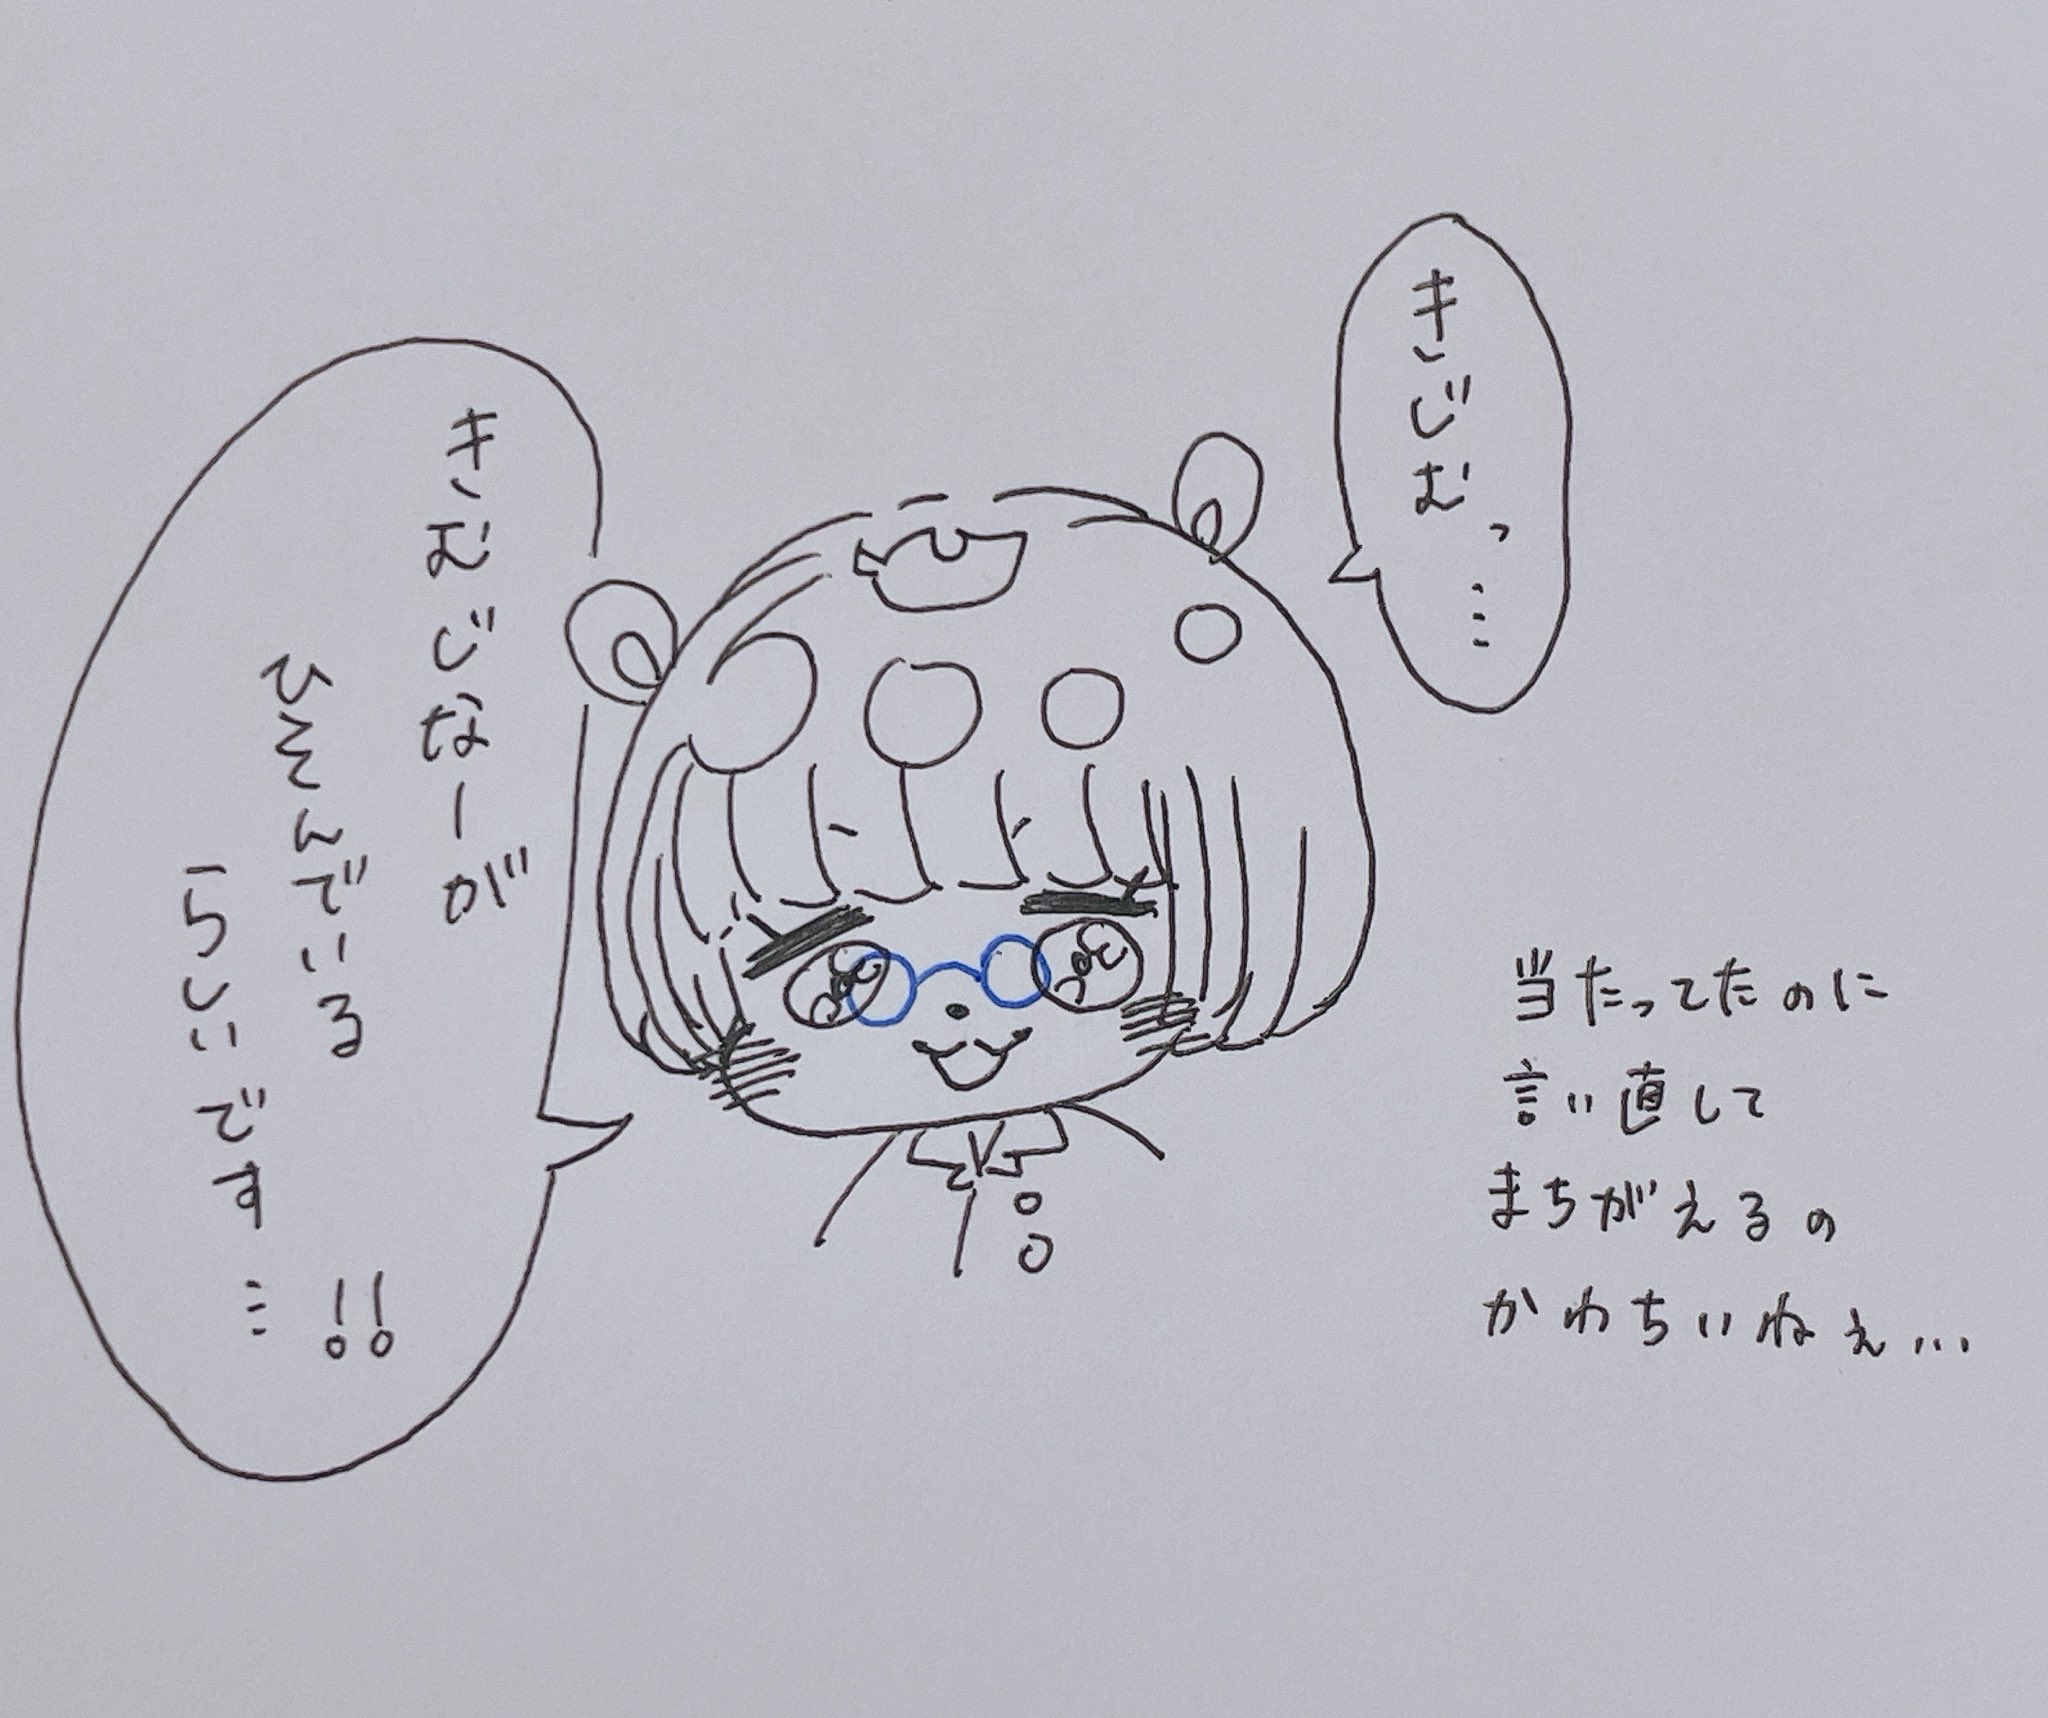 きじむっ…
きむじなーが
ひそんでいる
らしいです…!!
当たってたのに
言い直して
まちがえるの
かわちいねぇ…